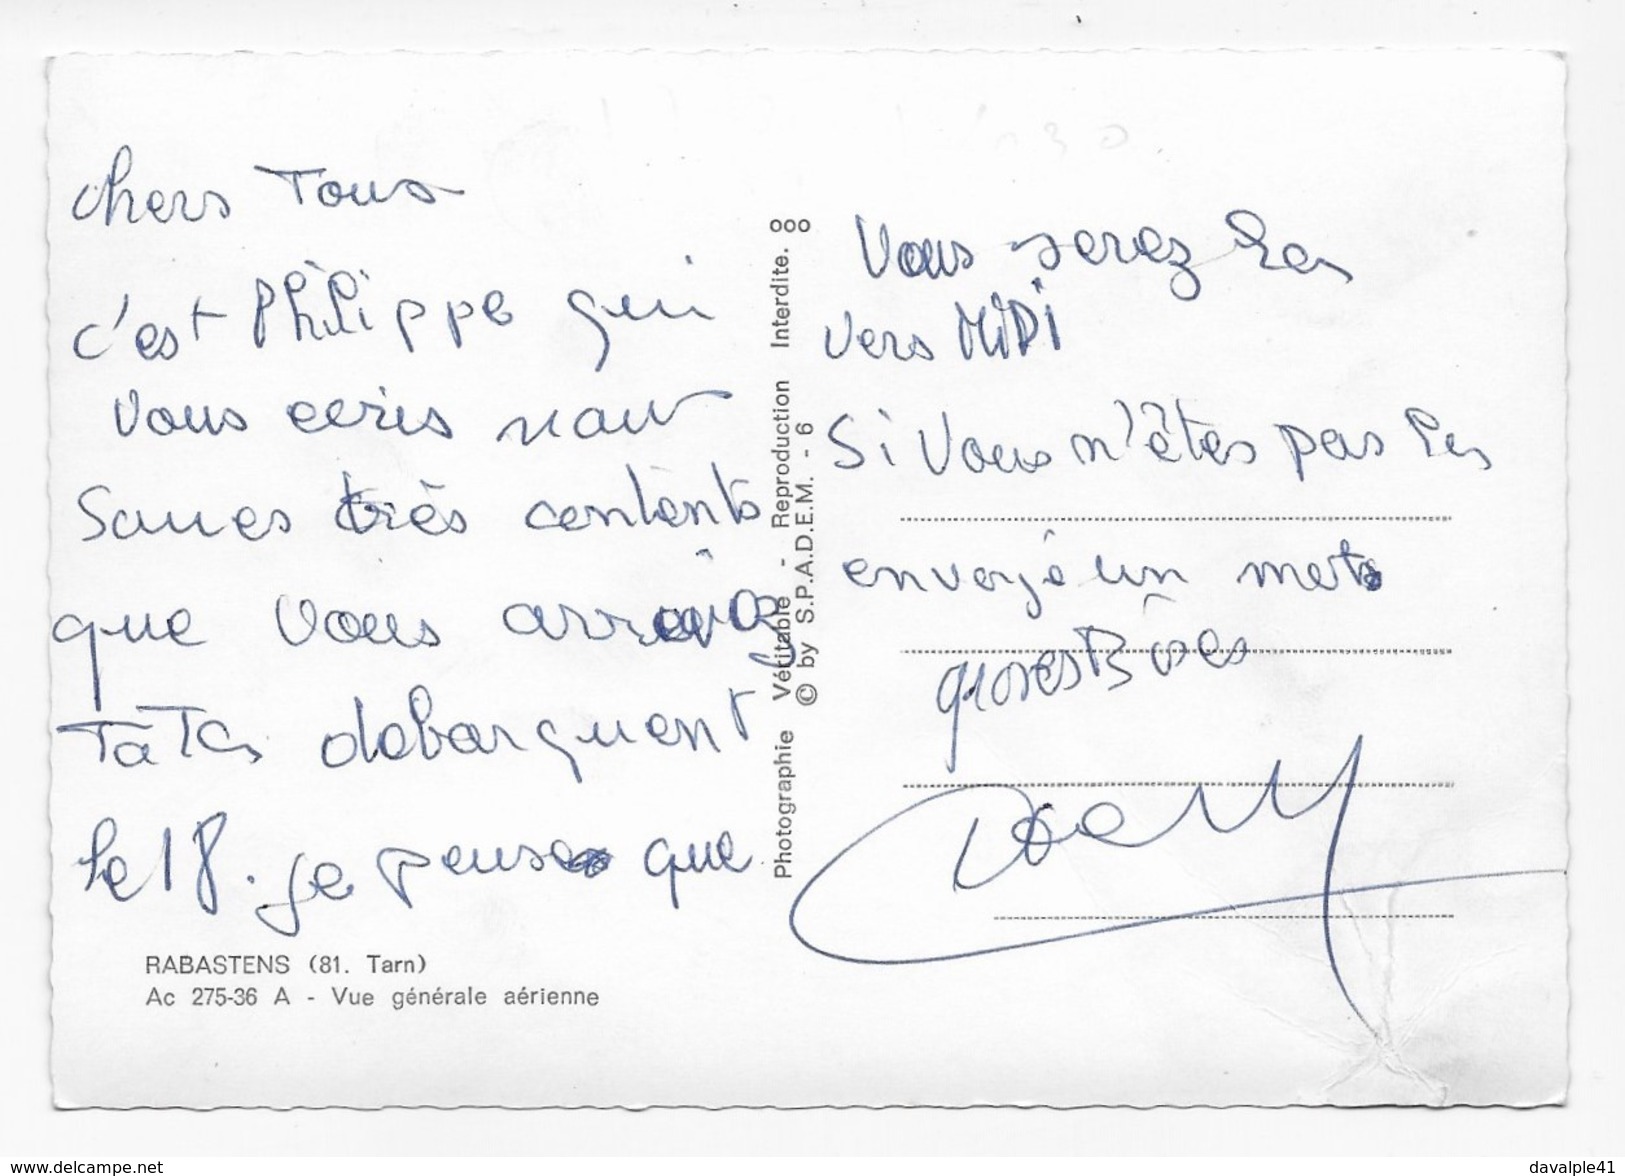 chers Tous
c'est Philippe qui
vous ecris nous
somes très contents
que vous arrivez
TaTa debarquent
le 18. je pense que
RABASTENS (81. Tarn)
Ac 275-36 A - Vue générale aérienne
Photographie Véritable - Reproduction Interdite. 8
© by S.P.A.D.E.M. - 6 8
Vous serez La
vers MiDi
Si Vous n'êtes pas La
envoyé un mot
groses Bises
www.delcampe.net
davalple41